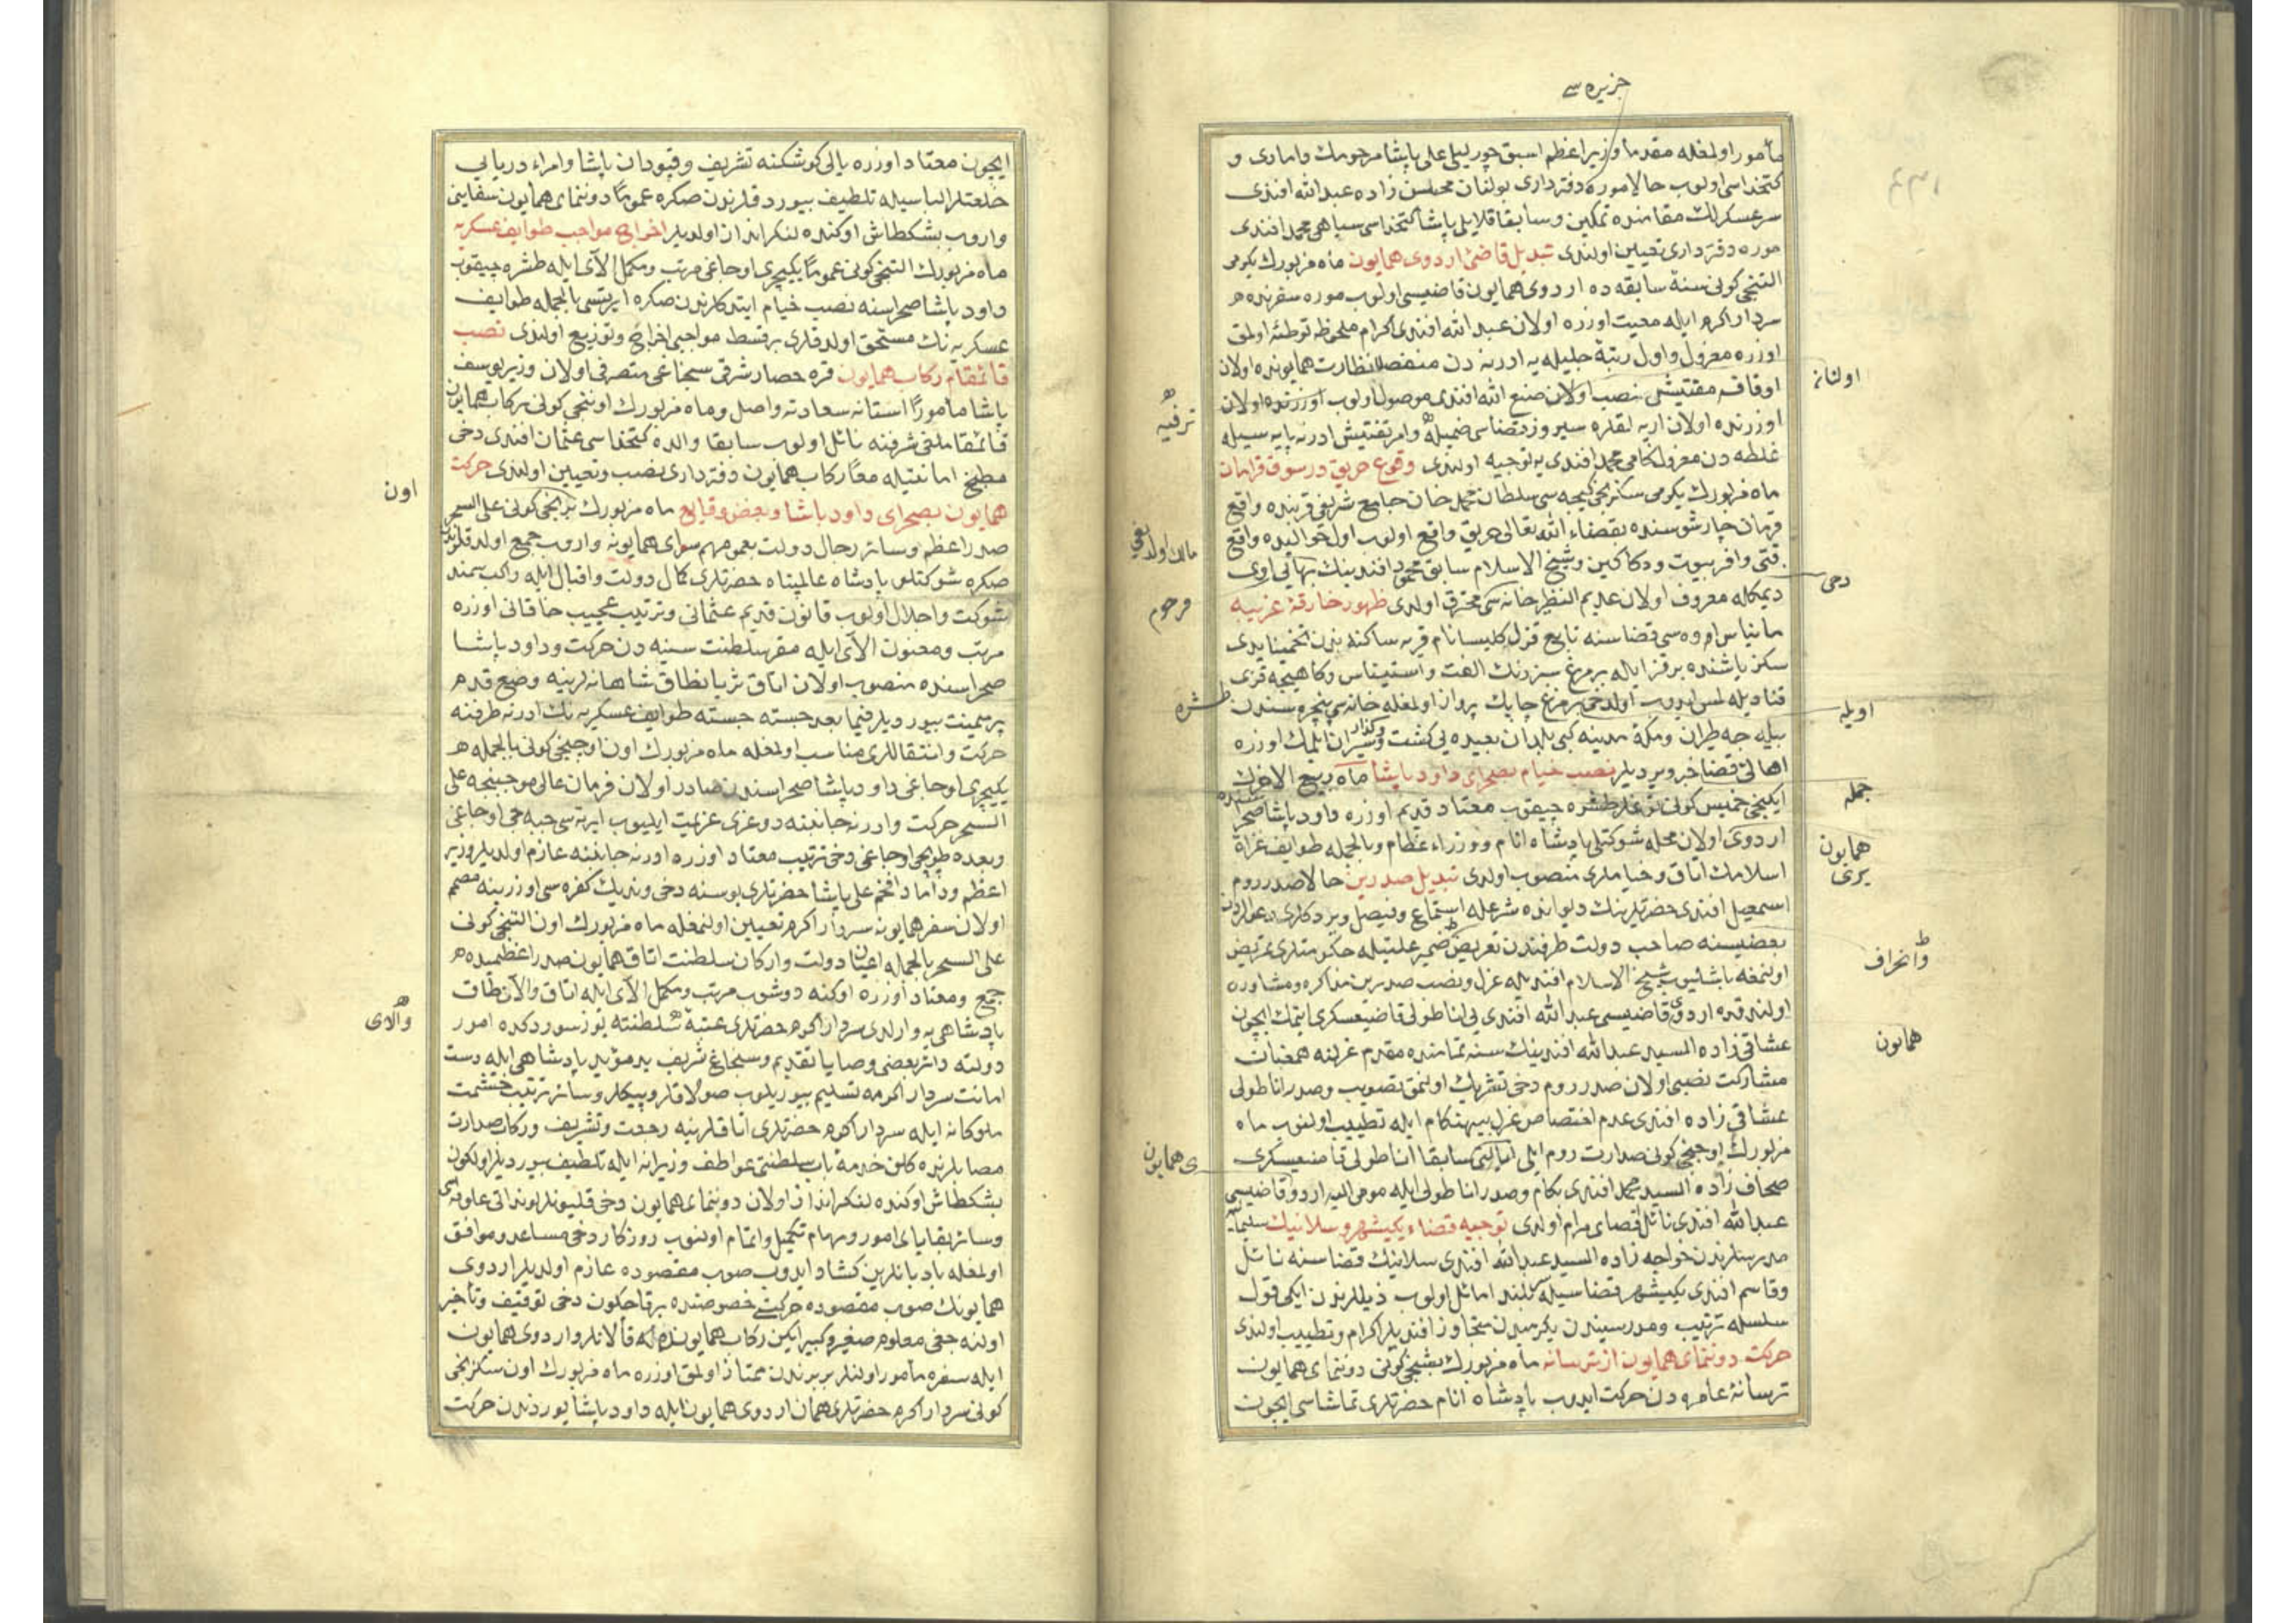 جزیره سے
مأمور اولمغله مقدما وزیر اعظم اسبق چورلیلی علی پاشا مرحومك دامادی و
کتخداسی اولوب حالا موره دفترداری بولنان محسن زاده عبد الله افندی
سرعسکرلك مقامنده تمکین وسابقا قلایلی پاشا کتخداسی سپاهی محمد افندی
موره دفترداری تعیین اولندی تبدیل قاضئ اردوی همایون ماه مزبورك یکرمی
التنجی کونی سنهٔ سابقه ده اردوی همایون قاضیسی اولوب موره سفرنده
سردار اکرم ایله معیت اوزره اولان عبد الله افندی اکرام ملحوظه توطئه اولمق
اوزره معزول واول رتبهٔ جلیله یه ادرنه دن منفصل نظارت همایونده اولان
اولنانه
اوقاف مفتیشی نصب اولان صنع الله افندی موصول اولوب اوزرنده اولان
ترفیه
اوزرنده اولان اربه لقلره سیروز قضاسی ضمیله وامر تفتیش ادرنه پایه سیله
غلطه دن معزول کامی محمد افندی یه توجیه اولندی وقوع حریق در سوق قرامان
ماه مزبورك یکرمی سکزنجی کیجه سی سلطان محمد خان جامع شریفی قربنده واقع
قرمان چارشوسنده بقضاء الله تعالی حریق واقع اولوب اول حوالیده واقع
مالك اولدیغی
فتی وافر بیوت ودکاکین وشیخ الاسلام سابق محمود افندینك بهائی اوی
دخی
دیمکله معروف اولان عدیم النظیر خانه سی محترق اولدی ظهور خارقهٔ غریبه
مرحوم
مانیاس اووه سی قضاسنه تابع قزل کلیسا نام قریه ساکنه بدن تخمینا یدی
سکز یاشنده برقز ایله بر مرغ سبز رنك الفت واستیناس وکاهیجه قزی
قنادیله لمس ایدوب اولدخی بر مرغ چابك پرواز اولمغله خانه سی پنجره سندن
طشره
اویله
بیله جه طیران ومکه مدینه کبی بلدان بعیده یی کشت وکذار وسیران ایلمك اوزره
اهالئ قضا خبر ویردیلر نصب خیام بصحرای داود پاشا ماه ربیع الاخرك
جمله
ایکنجی خمیس کونی توغلر طشره چیقوب معتاد قدیم اوزره داود پاشا صحراسنده
اردوی اولان محله شوکتلی پادشاه انام ووزراء عظام وبالجمله طوایف غزاة
همایون یری
اسلامك اتاق وخیاملری منصوب اولدی تبدیل صدرین حالا صدر روم
اسمعیل افندی حضرتلرینك دیوانده شرعله استماع وفیصل ویردکلری دعوالردن
بعضیسنه صاحب دولت طرفندن تعریض ضمیر علتیله حکومتلری تمریض
وانحراف
اولنمغه باشلیوب شیخ الاسلام افندیله عزل ونصب صدرین مذاکره ومشاوره
اولندقده اردوی قاضیسی عبد الله افندی یی اناطولی قاضیعسکری ایتمك ایچون
همایون
عشاقی زاده السید عبد الله افندینك سنه تمامنده مقدم عزلنه همعنان
مشارکت نصبی اولان صدر روم دخی تشریك اولنمق تصویب وصدر اناطولی
عشاقی زاده افندی عدم اختصاص عزل بیهنکام ایله تطییب اولنوب ماه
مزبورك اوچنجی کونی صدارت روم ایلی سابقا اناطولی قاضیعسکری
ی همایون
صحاف زاده السید محمد افندی بکام وصدر اناطولی ایله مومی الیه اردو قاضیسی
عبد الله افندی نائل اقصای مرام اولدی توجیه قضاء یکیشهر وسلانیك سلیمانیه
مدرسلرندن خواجه زاده السید عبد الله افندی سلانیك قضاسنه نائل
وقاسم افندی یکیشهر قضاسیله سربلند اماثل اولوب ذیللرندن ایکی قول
سلسله ترتیب ومدرسیندن یکرمیدن متجاوز افندیلر اکرام وتطییب اولندی
حرکت دوننمای همایون از ترسانه ماه مزبورك بشنجی کونی دوننمای همایون
ترسانهٔ عامره دن حرکت ایدوب پادشاه انام حضرتلری تماشاسی ایچون
ایچون معتاد اوزره یالی کوشکنه تشریف وقپودان پاشا وامراء دریایی
خلعتلر الباسیله تلطیف بیوردقلرندن صکره عموما دوننمای همایون سفاینی
واروب بشکطاش اوکنده لنکر انداز اولدیلر اخراج مواجب طوایف عسکریه
ماه مزبورك التنجی کونی عموما یکیچری اوجاغی مرتب ومکمل الآی ایله طشره چیقوب
داود پاشا صحراسنه نصب خیام ایتدکلرندن صکره ایرتسی بالجمله طوایف
عسکریه نك مستحق اولدقلری بر قسط مواجبی اخراج وتوزیع اولندی نصب
قائمقام رکاب همایون قره حصار شرقی سنجاغی متصرفی اولان وزیر یوسف
پاشا مأمورا استانه سعادته واصل وماه مزبورك اوننجی کونی رکاب همایون
قائمقاملغی شرفنه نائل اولوب سابقا والده کتخداسی عثمان افندی دخی
مطبخ امانتیله معا رکاب همایون دفترداری نصب وتعیین اولندی حرکت
اون
همایون بصحرای داود پاشا وبعض وقایع ماه مزبورك برنجی کونی علی السحر
صدر اعظم وسائر رجال دولت بعمومهم سرای همایونه واروب جمع اولدقلرندن
صکره شوکتلو پادشاه عالمپناه حضرتلری کمال دولت واقبال ایله راکب سمند
شوکت واجلال اولوب قانون قدیم عثمانی وترتیب عجیب خاقانی اوزره
مرتب ومعنون الآی ایله مقر سلطنت سنیه دن حرکت وداود پاشا
صحراسنده منصوب اولان اتاق ثریا نطاق شاهانه لرینه وضع قدم
پر میمنت بیوردیلر فیما بعد جسته جسته طوایف عسکریه نك ادرنه طرفنه
حرکت وانتقاللری مناسب اولمغله ماه مزبورك اون اوچنجی کونی بالجمله
یکیچری اوجاغی داود پاشا صحراسندن صادر اولان فرمان عالی موجبنجه علی
السحر حرکت وادرنه جانبنه دوغری عزیمت ایلیوب ایرته سی جبه جی اوجاغی
وبعده طوپجی اوجاغی دخی ترتیب معتاد اوزره ادرنه جانبنه عازم اولدیلر وزیر
اعظم وداماد افخم علی پاشا حضرتلری بو سنه دخی وندیك کفره سی اوزرینه مصمم
اولان سفر همایونه سردار اکرم تعیین اولنمغله ماه مزبورك اون التنجی کونی
علی السحر بالجمله اعیان دولت وارکان سلطنت اتاق همایون صدر اعظمیده
جمع ومعتاد اوزره اوکنه دوشوب مرتب ومکمل الآی ایله اتاق والآ نطاق
والای
پادشاهی یه وارلدی سردار اکرم حضرتلری عتبهٔ سلطنته یوز سوردکده امور
دولته دائر بعضی وصایا تقدیم وسنجاغ شریف ید مؤید پادشاهی ایله دست
امانت سردار اکرمه تسلیم بیوریلوب صولاقلر وپیکلر وسائر ترتیب حشمت
ملوکانه ایله سردار اکرم حضرتلری اتاقلرینه رجعت وتشریف ورکاب صدارت
مصابلرنده کلان خدمهٔ باب سلطنتی عواطف وزیرانه ایله تلطیف بیوردیلر اولکون
بشکطاش اوکنده لنکر انداز اولان دوننمای همایون دخی قلیونلر لوندانی علوفه سی
وسائر بقایای امور ومهام تکمیل واتمام اولنوب روزکار دخی مساعد وموافق
اولمغله بادبانلرین کشاد ایدوب صوب مقصوده عازم اولدیلر اردوی
همایونك صوب مقصوده حرکتی خصوصنده برقاچ کون دخی توقیف وتأخیر
اولنه جغی معلوم صغیر وکبیر ایکن رکاب همایونده قالانلر واردوی همایون
ایله سفره مأمور اولنلر بربرندن ممتاز اولمق اوزره ماه مزبورك اون سکزنجی
کونی سردار اکرم حضرتلری همان اردوی همایون ایله داود پاشا یوردندن حرکت